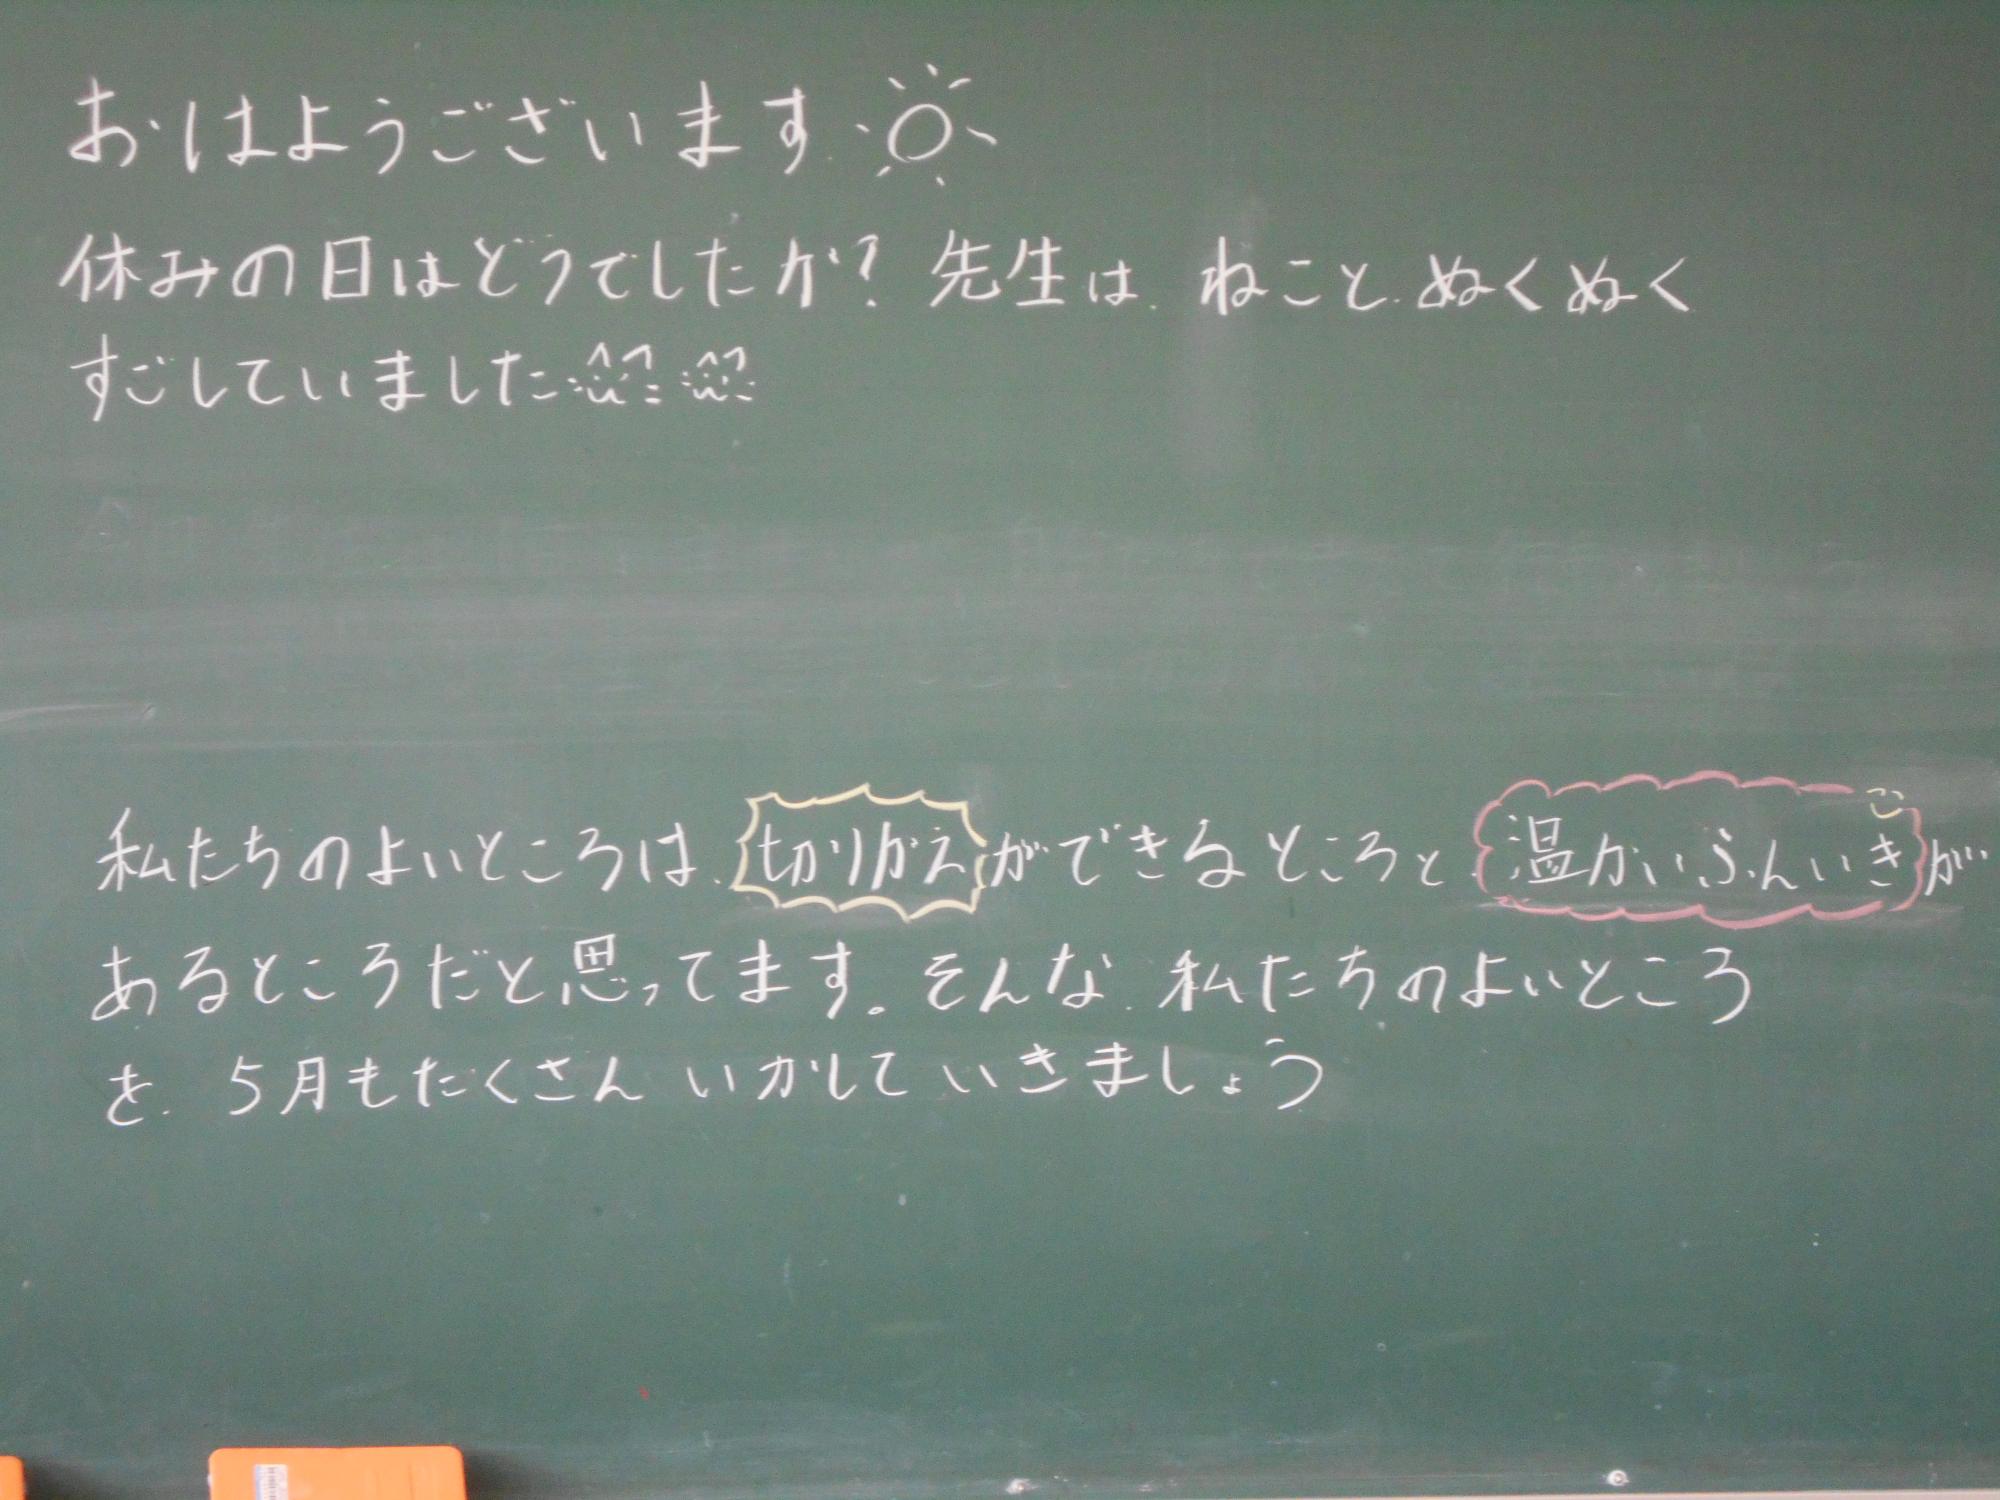 おはようございます
休みの日はどうでしたか？先生は ねことぬくぬく
すごしていました
私たちのよいところは 切りかえができるところと 温かいふんいきが
あるところだと思ってます。そんな 私たちのよいところ
を 5月もたくさん いかして いきましょう